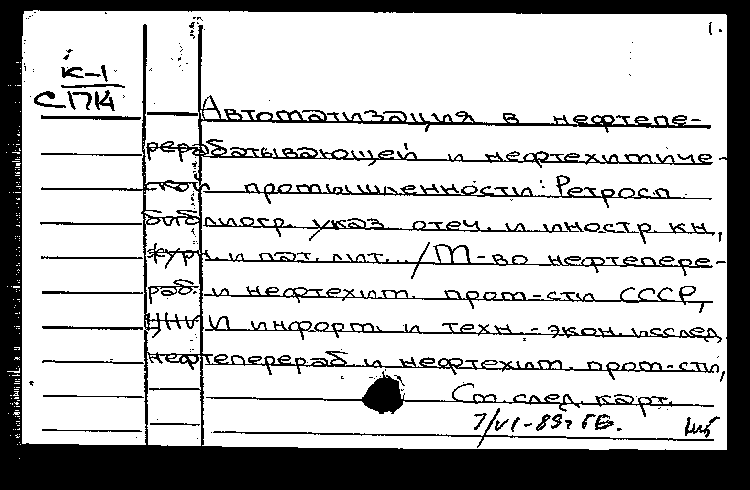 1.
К-1
С1714
Автоматизация в нефтепе-
рерабатывающей и нефтехимиче-
ской промышленности: Ретросп.
библиогр. указ. отеч. и иностр. кн.,
журн. и пат. лит. ../М-во нефтепере-
раб. и нефтехим. пром-сти СССР,
ЦНИИ информ. и техн.-экон. исслед.
нефтеперераб. и нефтехим. пром-сти,
См. след. карт.
7/VI-89г ГБ.